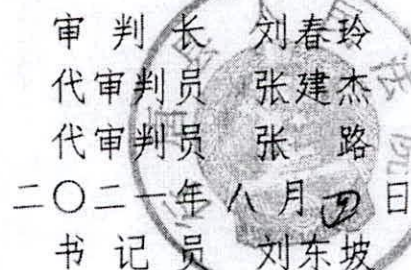 审判长 刘春玲
代审判员 张建杰
代审判员 张路
二〇二一年八月四日
书记员 刘东坡